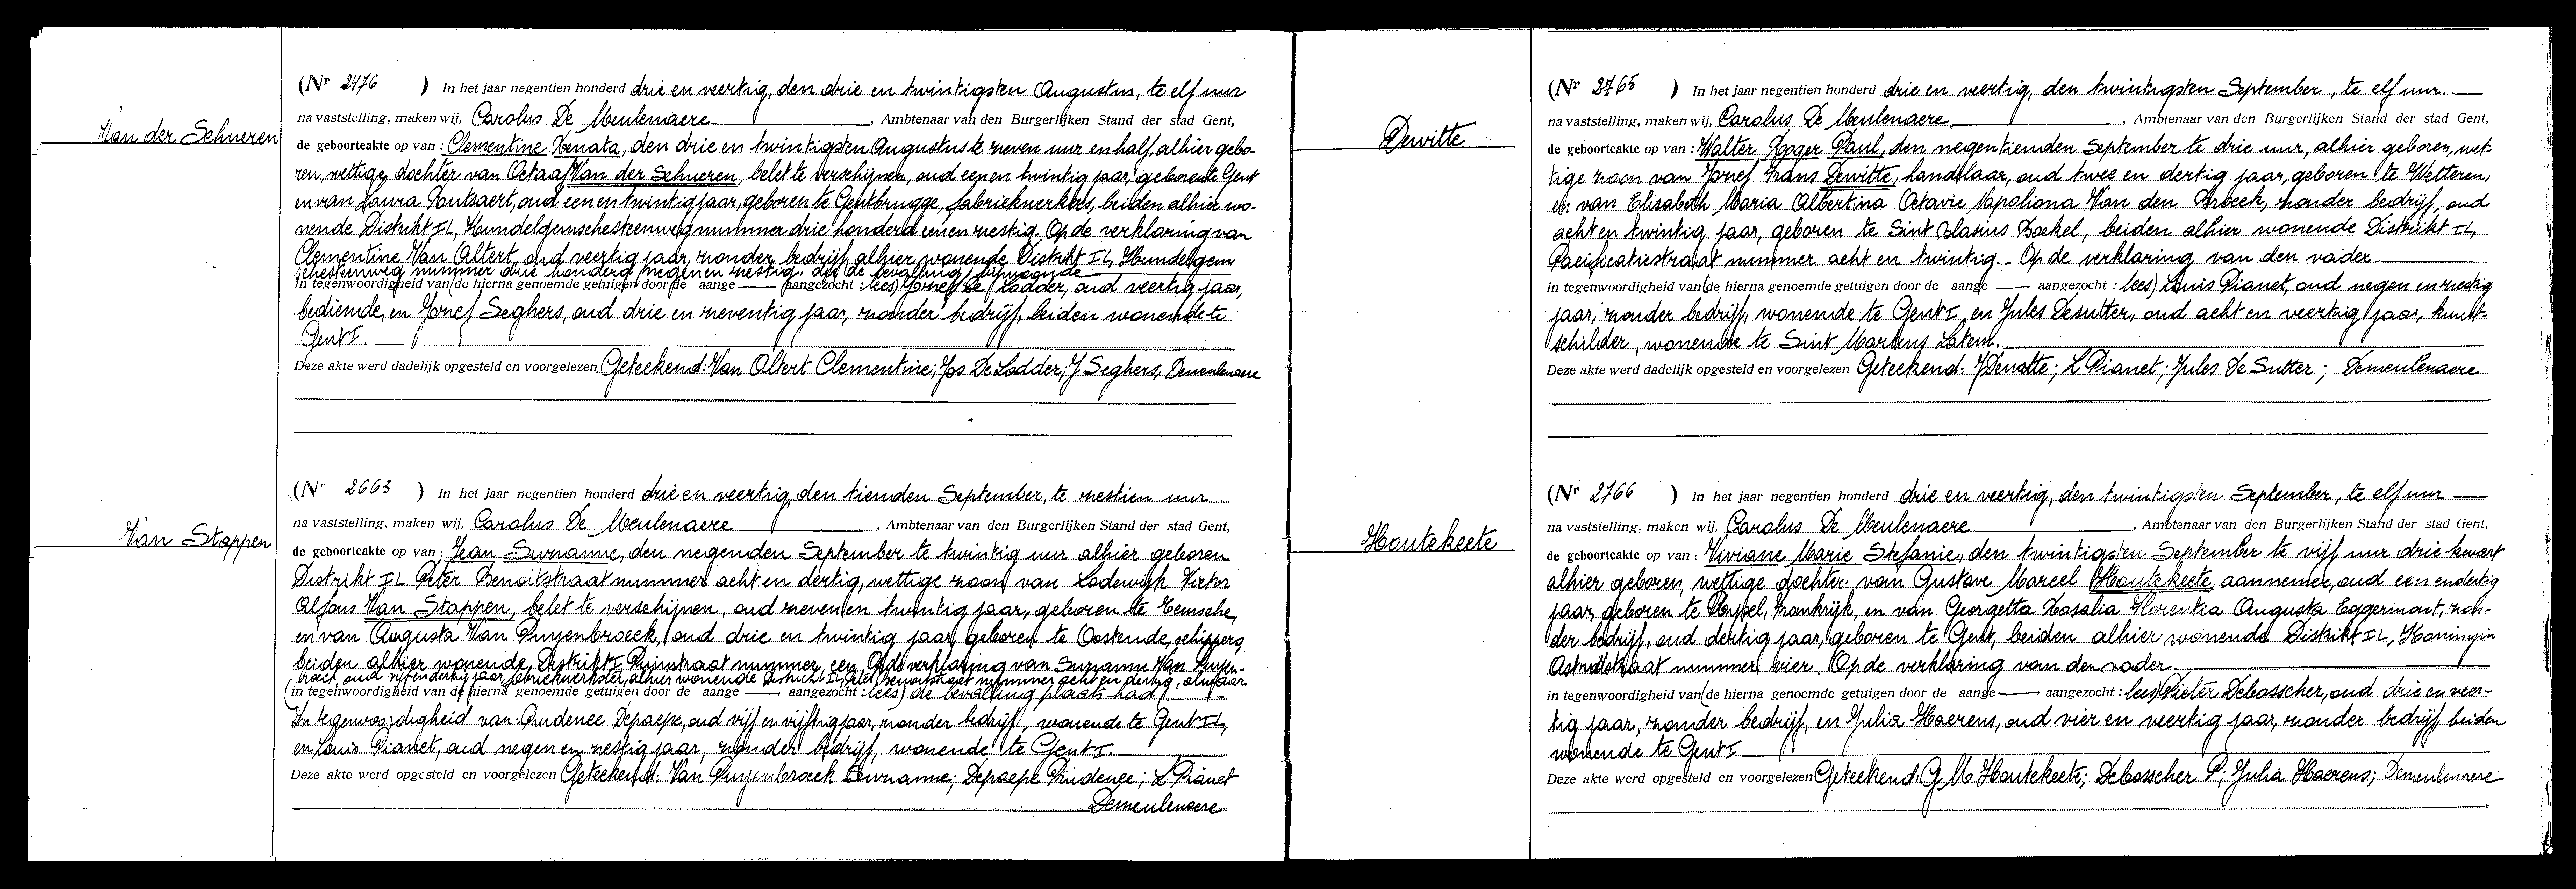 Van der Schueren
(Nr 2476 ) In het jaar negentien honderd drie en veertig, den drie en twintigsten Augustus, te elf uur
na vaststelling, maken wij, Carolus De Meulenaere, Ambtenaar van den Burgerlijken Stand der stad Gent,
de geboorteakte op van : Clementine Renata, den drie en twintigsten Augustus te zeven uur en half, alhier gebo-
ren, wettige dochter van Octaaf Van der Schueren, belet te verschijnen, oud een en twintig jaar, geboren te Gent
en van Laura Poutsaert, oud een en twintig jaar, geboren te Gentbrugge, fabriekwerkers, beiden alhier wo-
nende Distrikt IL, Hundelgemschesteenweg nummer drie honderd een en zestig. Op de verklaring van
Clementine Van Altert, oud veertig jaar, zonder bedrijf, alhier wonende Distrikt IL, Hundelgem
schesteenweg nummer drie honderd negen en zestig, die de bevalling bijwoonde
in tegenwoordigheid van (de hierna genoemde getuigen door de aange — aangezocht : lees) Jozef De Lodder, oud veertig jaar,
bediende, en Jozef Seghers, oud drie en zeventig jaar, zonder bedrijf, beiden wonende te
Gent I.
Deze akte werd dadelijk opgesteld en voorgelezen Geteekend: Van Altert Clementine; Jos De Lodder; J Seghers, Demeulenaere
Van Stappen
(Nr 2663 ) In het jaar negentien honderd drie en veertig, den tienden September, te zestien uur
na vaststelling, maken wij, Carolus De Meulenaere, Ambtenaar van den Burgerlijken Stand der stad Gent,
de geboorteakte op van : Jean Suzanne, den negenden September te twintig uur alhier geboren
Distrikt IL Peter Benoitstraat nummer acht en dertig, wettige zoon van Lodewijk Victor
Alfons Van Stappen, belet te verschijnen, oud zeven en twintig jaar, geboren te Temsche,
en van Augusta Van Puyenbroeck, oud drie en twintig jaar, geboren te Oostende, schippers,
beiden alhier wonende, Distrikt I, nummer een. Op de verklaring van Suzanne Van Puyen-
broeck, oud vijf en dertig jaar, fabriekwerkster, alhier wonende Distrikt IL, Peter Benoitstraat nummer acht en dertig, alwaar
(in tegenwoordigheid van de hierna genoemde getuigen door de aange — aangezocht : lees) de bevalling plaats had
In tegenwoordigheid van: Prudence Depaepe, oud vijf en vijftig jaar, zonder bedrijf, wonende te Gent IL,
en Louis Pianet, oud negen en zestig jaar, zonder bedrijf, wonende te Gent I.
Deze akte werd opgesteld en voorgelezen Geteekend: Van Puyenbroeck Suzanne; Depaepe Prudence; L Pianet
Demeulenaere
Dewitte
(Nr 2765 ) In het jaar negentien honderd drie en veertig, den twintigsten September, te elf uur.
na vaststelling, maken wij, Carolus De Meulenaere, Ambtenaar van den Burgerlijken Stand der stad Gent,
de geboorteakte op van : Walter Roger Paul, den negentienden September te drie uur, alhier geboren, wet-
tige zoon van Jozef Frans Dewitte, handelaar, oud twee en dertig jaar, geboren te Wetteren,
en van Elisabeth Maria Albertina Octavie Napoliona Van den Broeck, zonder bedrijf, oud
acht en twintig jaar, geboren te Sint Blasius Boekel, beiden alhier wonende Distrikt IL,
Pacificatiestraat nummer acht en twintig. - Op de verklaring van den vader.
in tegenwoordigheid van (de hierna genoemde getuigen door de aange — aangezocht : lees) Louis Pianet, oud negen en zestig
jaar, zonder bedrijf, wonende te Gent I, en Jules Desutter, oud acht en veertig jaar, kunst-
schilder, wonende te Sint Martens Latem.
Deze akte werd dadelijk opgesteld en voorgelezen Geteekend: J Dewitte; L Pianet; Jules De Sutter; Demeulenaere
Houtekeete
(Nr 2766 ) In het jaar negentien honderd drie en veertig, den twintigsten September, te elf uur
na vaststelling, maken wij, Carolus De Meulenaere, Ambtenaar van den Burgerlijken Stand der stad Gent,
de geboorteakte op van : Viviane Marie Stefanie, den twintigsten September te vijf uur drie kwart
alhier geboren, wettige dochter van Gustave Marcel Houtekeete, aannemer, oud een en dertig
jaar, geboren te Frankrijk, en van Georgetta Rosalia Florentia Augusta Eggermont, zon-
der bedrijf, oud dertig jaar, geboren te Gent, beiden alhier wonende Distrikt IL, Koningin
Astridstraat nummer vier. Op de verklaring van den vader.
in tegenwoordigheid van (de hierna genoemde getuigen door de aange — aangezocht : lees) Pieter Debosscher, oud drie en veer-
tig jaar, zonder bedrijf, en Julia Haerens, oud vier en veertig jaar, zonder bedrijf, beiden
wonende te Gent I
Deze akte werd opgesteld en voorgelezen Geteekend: G M Houtekeete; Debosscher P; Julia Haerens; Demeulenaere